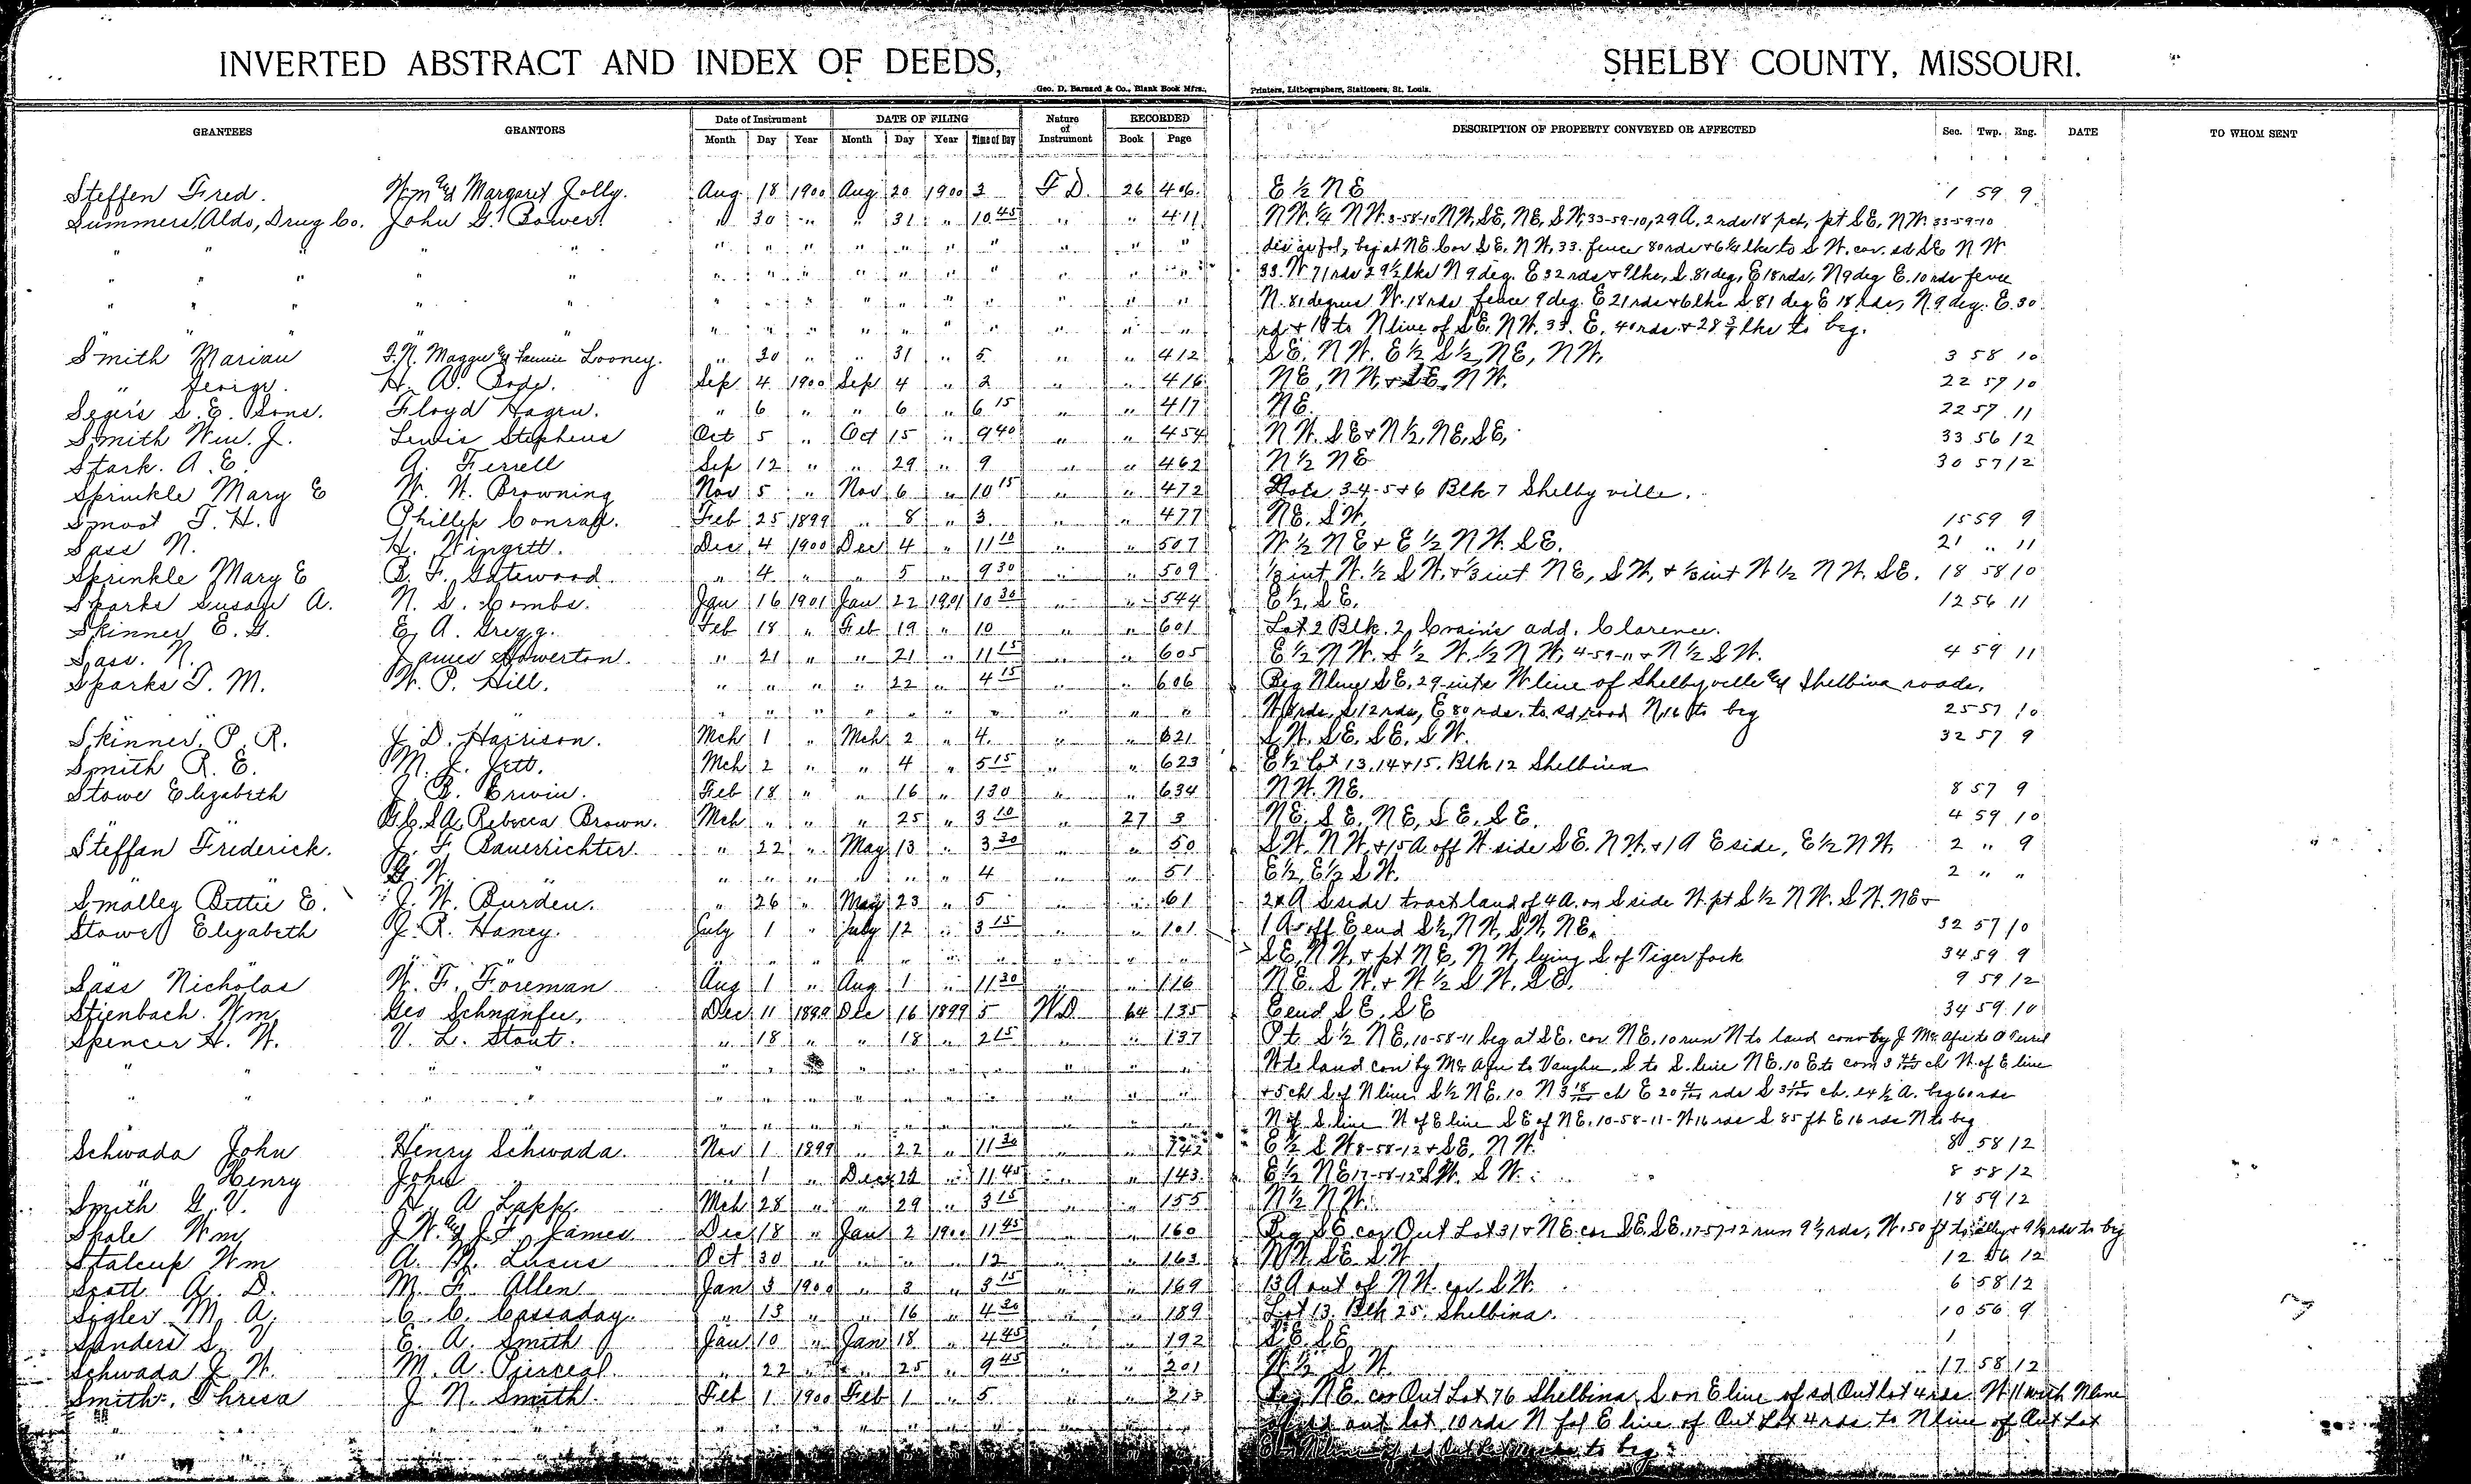 INVERTED ABSTRACT AND INDEX OF DEEDS, SHELBY COUNTY, MISSOURI.
Geo. D. Barnard & Co., Blank Book Mfrs., Printers, Lithographers, Stationers, St. Louis.
GRANTEES GRANTORS Date of Instrument DATE OF FILING Nature of Instrument RECORDED DESCRIPTION OF PROPERTY CONVEYED OR AFFECTED Sec. Twp. Rng. DATE TO WHOM SENT
Month Day Year Month Day Year Time of Day Book Page
Steffen Fred. Wm & Margaret Jolly. Aug 18 1900 Aug 20 1900 3 T D. 26 406. E ½ N E 1 59 9
Summers, Aldo, Drug Co. John G. Bower. " 30 " " 31 " 10 45 " " 411 N W. ¼ N W. 3-58-10 N W, S E, N E, S W, 33-59-10, 29 A, 2 rds 18 pt S E, N W. 33-59-10
" " " " " " " " " " " " " " " beg at N E. Cor S E. N W, 33. fence 80 rds + 6 ¼ lks to S W. cor. sd S E N W
" " " " " " " " " " " " " " " 33. W 71 rds 29 ½ lks N 9 deg. E 32 rds + 9 lks, S. 81 deg, E 18 rds, N 9 deg E. 10 rds fence
" " " " " " " " " " " " " " " N. 81 degrees W. 18 rds fence 9 deg. E 21 rds + 6 lks S 81 deg E 18 rds, N 9 deg. E. 30
" " " " " " " " " " " " rd + 19 to N line of S E. N W. 33. E. 40 rds + 28 lks to beg.
Smith Marian Maggie & Fannie Looney. " 30 " " 31 " 5 " " 412 S E. N W. E ½ S ½, N E, N W, 3 58 10
" H. A. Sep 4 1900 Sep 4 " 2 " " 416 N E, N W, + S E, N W. 22 59 10
Segers S. E. Sons. Floyd Hagen. " 6 " " 6 " 6 15 " " 417 N E. 22 57 11
Smith Wm. J. Lewis Stephens Oct 5 " Oct 15 " 9 40 " " 454 N W. S E + N ½, N E, S E, 33 56 12
Stark. A. E. A. Ferrell Sep 12 " " 29 " 9 " " 462 N ½ N E 30 57 12
Sprinkle Mary E W. W. Browning Nov 5 " Nov 6 " 10 15 " " 472 Lots 3-4-5 + 6 Blk 7 Shelbyville.
Smoot T. H. Phillip Conrad. Feb 25 1899 " 8 " 3 " " 477 N E. S W, 15 59 9
Sass N. H. Wingett. Dec 4 1900 Dec 4 " 11 10 " " 507 W ½ N E + E ½ N W. S E. 21 " 11
Sprinkle Mary E B. F. Gatewood. " 4 " " 5 " 9 30 " " 509 ⅓ int W. ½ S W. + ⅓ int N E, S W, + ⅓ int W ½ N W, S E. 18 58 10
Sparks Susan A. N. S. Combs. Jan 16 1901 Jan 22 1901 10 30 " " 544 E ½, S E. 12 56 11
Skinner E. G. E. A. Gregg. Feb 18 " Feb 19 " 10 " " 601 Lot 2 Blk. 2, Crain's add. Clarence.
Sass. N. James Howerton. " 21 " " 21 " 11 15 " " 605 E ½ N W. S ½ W. ½ N W, 4-59-11 + N ½ S W. 4 59 11
Sparks T. M. W. P. Hill. " " " " 22 " 4 15 " " 606 Beg N line S E. 29 W line of Shelbyville & Shelbina roads,
" " " " " " " " " " S 12 rds, E 80 rds. to sd road N 16 to beg 25 57 10
Skinner. P. R. J. D. Harrison. Mch 1 " Mch 2 " 4. " " 621 S W. S E. S E. S W. 32 57 9
Smith R. E. M. J. Jett. Mch 2 " " 4 " 5 15 " " 623 E ½ Lot 13, 14 + 15. Blk 12 Shelbina
Stowe Elizabeth J. B. Erwin. Feb 18 " " 16 " 1 30 " " 634 N W. N E. 8 57 9
" " S A, Rebecca Brown. Mch " " " 25 " 3 10 " 27 3 N E. S E. N E, S E. S E. 4 59 10
Steffan Frederick. J. F. Bauerrichter. " 22 " May 13 " 3 30 " " 50 S W. N W, + 15 A off W side S E. N W. + 1 A E side, E ½ N W. 2 " 9
" G. W. " " " " " " 4 " " 51 E ½, E ½ S W. 2 " "
Smalley Bettie E. J. W. Burden. " 26 " May 23 " 5 " " 61 2 A S side tract land of 4 A. on S side W. pt S ½ N W. S W. N E +
Stowe Elizabeth J. R. Haney. July 1 " July 12 " 3 15 " " 101 1 A off E end S ½, N W, S W, N E. 32 57 10
" " " " " " " " " " " " S E, N W. + pt N E, N W, lying S of Tiger fork 34 59 9
Sass Nicholas W. F. Foreman Aug 1 " Aug 1 " 11 30 " " 116 N E. S W. + W ½ S W. S E. 9 59 12
Stienbach. Wm, Geo Dec 11 1899 Dec 16 1899 5 W D 64 135 E end S E, S E 34 59 10
Spencer H. W. V. L. Stout. " 18 " " 18 " 2 15 " " 137 Pt. S ½ N E, 10-58-11 beg at S E. cor N E. 10 run N to land conv by J Mc Afee to
" " " " " " " " " " " " " W to land con by Mc Afee to Vaughn, S to S. line N E. 10 E to com 3 ch W. of E line
" " " " " " " " " " " " " + 5 ch S of N line S ½ N E. 10 N 3 ch E 20 rds S 3 ch. ex ½ A. beg 60 rds
" " " " " " " " " " N of S. line W of E line S E of N E. 10-58-11 - W 16 rds S 85 ft E 16 rds N to beg
Schwada John Henry Schwada. Nov 1 1899 " 22 " 11 30 " " 142 E ½ S W 8-58-12 + S E, N W. 8 58 12
" Henry John " " 1 " Dec 22 " 11 45 " " 143. E ½ N E 17-58-12 S W. S W. 8 58 12
Smith G. V. A Lapp. Mch 28 " " 29 " 3 15 " " 155 N ½ N W. 18 59 12
Shale Wm J. W. & J. F. James Dec 18 " Jan 2 1900 11 45 " " 160 Beg S E cor Out Lot 31 + N E. cor S E. S E. 17-57-12 run 9 ½ rds, W. 50 ft to alley + 9 ½ rds to beg
Stalcup Wm A. M. Lucus Oct 30 " " " " 12 " " 163 N W. S E S W 12 56 12
Scott A. D. M. F. Allen Jan 3 1900 " 3 " 3 15 " " 169 13 A out of N W. cor. S W. 6 58 12
Sigler M. A. C. C. Cassaday. " 13 " " 16 " 4 30 " " 189 Lot 13. Blk 25. Shelbina. 10 56 9
Sanders S. V E. A. Smith Jan 10 " Jan 18 " 4 45 " " 192 S E. S E 1
Schwada J. W. M. A. " 22 " " 25 " 9 45 " " 201 W ½ S W. 17 58 12
Smith, Thresa J. N. Smith. Feb 1 1900 Feb 1 " 5 " " 213 Beg N E. cor Out Lot 76 Shelbina. S on E line of sd Out lot 4 rds W 11 with N line
" " " " " " " " " " " " out lot 10 rds N E line of Out Lot 4 rds to N line of Out Lot
" " " " to beg.